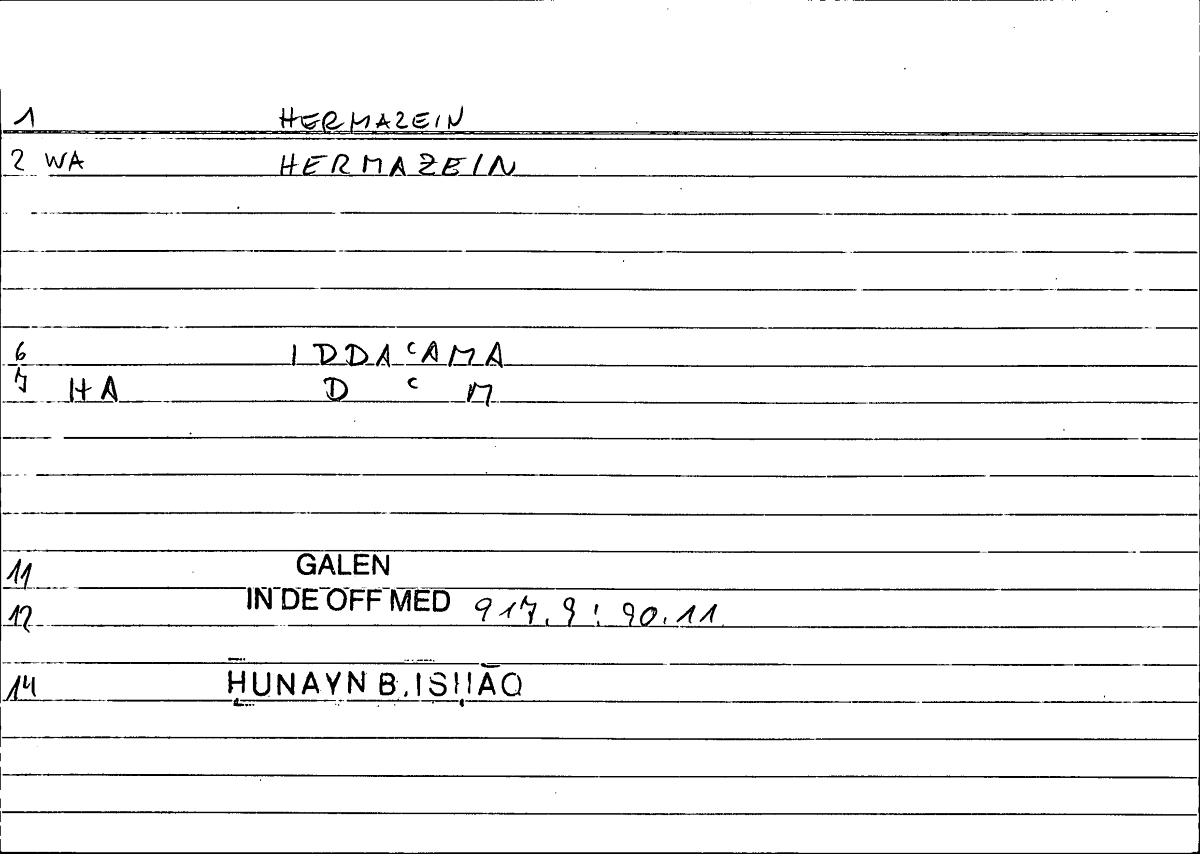 1 HERMAZEIN
2 WA HERMAZEIN
6 IDDAᶜAMA
7 HA D ᶜ M
11 GALEN
12 IN DE OFF MED 917.9: 90.11
14 ḤUNAYN B. ISḤĀQ